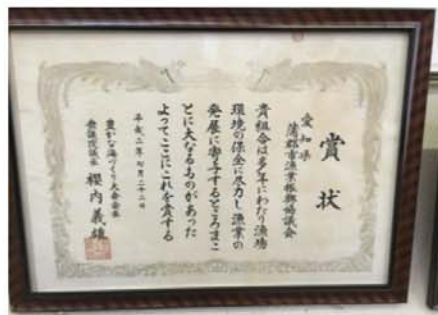 賞状
愛知県
蒲郡市漁業振興協議会
貴組合は多年にわたり漁場
環境の保全に尽力し漁業の
発展に寄与するところまこ
とに大なるものがあった
よってここにこれを賞する
平成二年七月二十二日
豊かな海づくり大会会長
衆議院議長 櫻内義雄